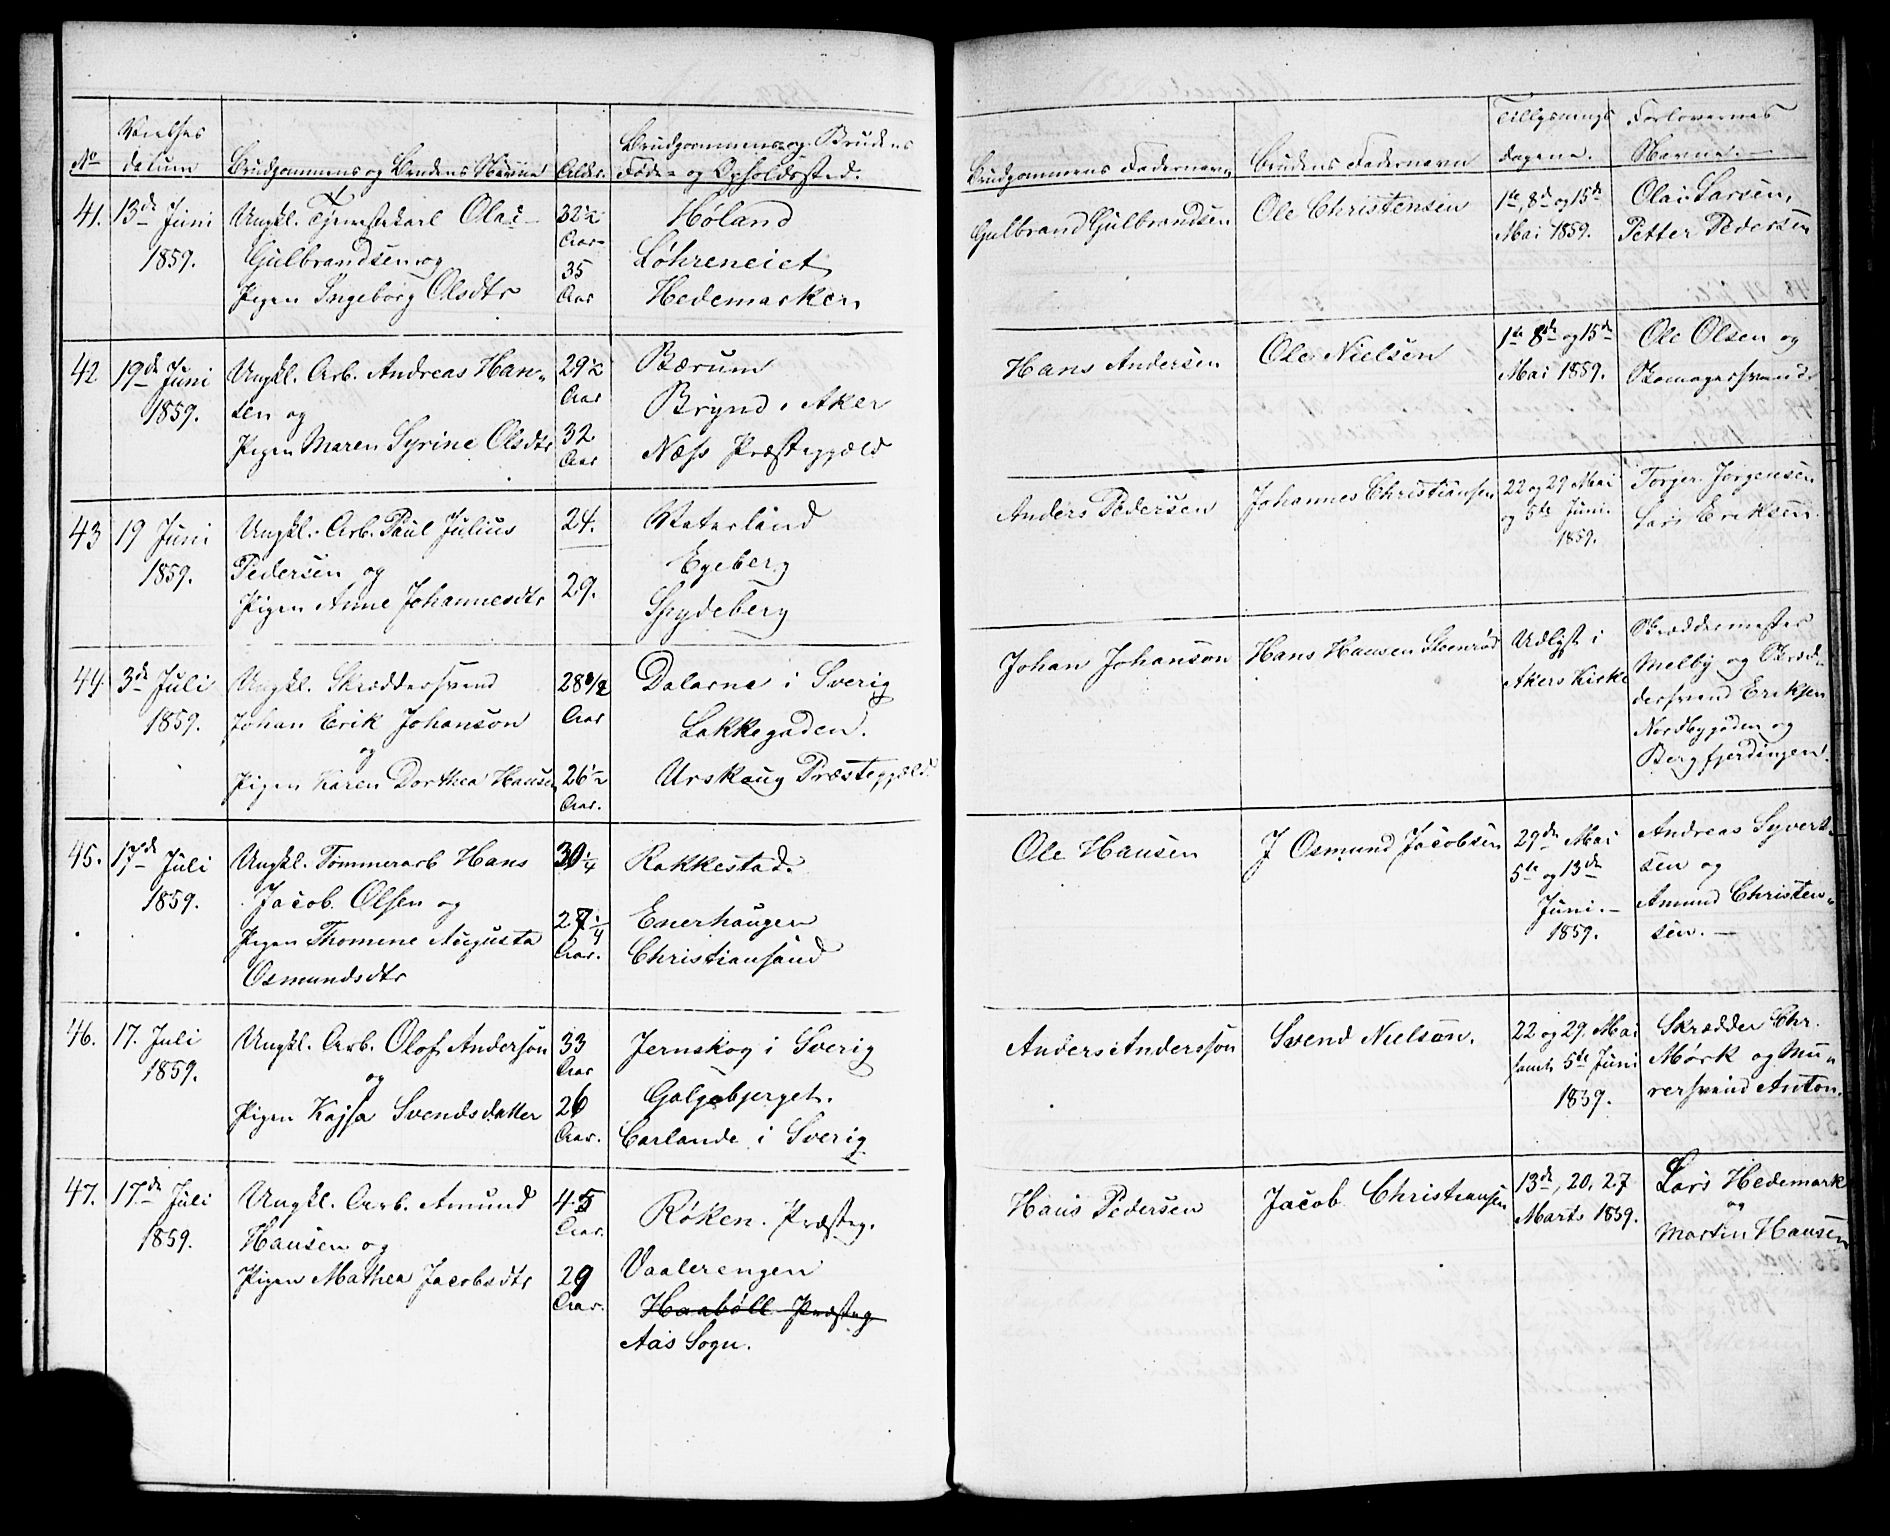 No
Vielses
datum
Brudgommens og Brudens Navne
Alder.
Brudgommens og Brudens
Føde- og Opholdssted.
Brudgommens Fadernavn
Brudens Fadernavn
Tillysnings
dagene.
Forlovernes
Navne.
41.
13de Juni
1859.
Ungkl. Tjenestekarl Olai
Gulbrandsen og
Pigen Ingeborg Olsdtr
32½
Aar
35
Aar
Høland
Løhreneiet
Hedemarken
Gulbrand Gulbrandsen
Ole Christensen
1te, 8de og 15de
Mai 1859.
Olai Larsen,
Petter Pedersen
42
19de Juni
1859.
Ungkl. Arb. Andreas Han-
sen og
Pigen Maren Syrine Olsdtr
29½
Aar
32
Aar
Bærum
Brynd. Aker
Næss Præstegjæld
Hans Andersen
Ole Nielsen
1te 8de og 15de
Mai 1859.
Ole Olsen og
Skomagersvend
43
19 Juni
1859.
Ungkl. Arb. Paul Julius
Pedersen og
Pigen Anne Johannesdtr
24.
29.
Vaterland
Egeberg
Spydeberg
Anders Pedersen
Johannes Christiansen
22 og 29 Mai
og 5te Juni.
1859.
Torger Jørgensen
Lars Eriksen
44
3de Juli
1859.
Ungkl. Skræddersvend
Johan Erik Johanson
og
Pigen Karen Dorthea Hansen
28
Aar
26½
Aar.
Dalarna i Sverig
Lakkegaden.
Urskoug Præstegjæld
Johan Johanson
Hans Hansen
Udlyst i
Akers Kirke
Skræddermester
Melby og Skræd-
dersvend Eriksen
Nordbygaden og
Bergfjerdingen.
45.
17de Juli
1859.
Ungkl. Tømmerarb Hans
Jacob Olsen og
Pigen Thomine Augusta
Osmundsdtr
30¼
27¼
Aar.
Rakkestad.
Enerhaugen
Christiansand
Ole Hansen
J Osmund Jacobsen
29de Mai
5te og 13de
Juni.
1859.
Andreas Syvert-
sen og
Amund Christen-
sen.
46.
17. Juli
1859.
Ungkl. Arb. Olof Anderson
og
Pigen Kajsa Svendsdatter
33
Aar
26
Aar.
Jernskog i Sverig
Galgebjerget.
Carlande i Sverig
Anders Andersson
Svend Nielson.
22 og 29 Mai
samt 5te Juni
1859.
Skrædder Chr.
Mørk og Mu-
rersvend Anton.
47.
17de Juli
1859.
Ungkl. Arb. Amund
Hansen og
Pigen Mathea Jacobsdtr
45
Aar.
29
Aar.
Røken. Præsteg.
Vaalerengen
Haabøll Præsteg
Aas Sogn.
Hans Pedersen
Jacob Christiansen
13de, 20, 27
Marts 1859.
Lars Hedemark
og
Martin Hansen